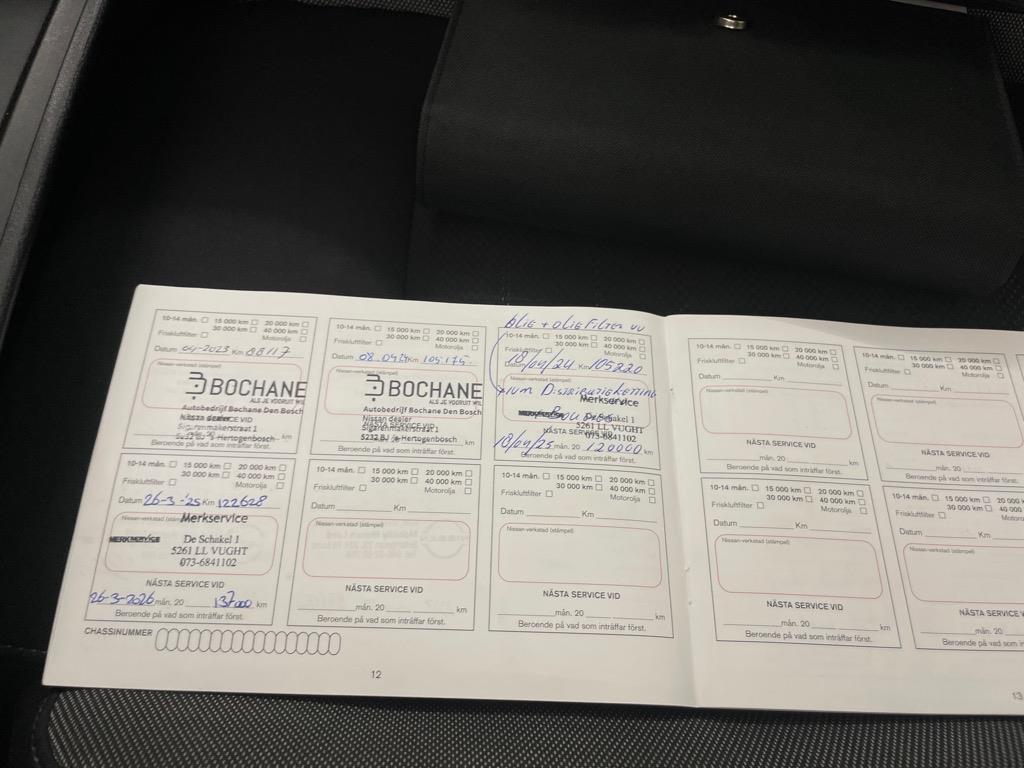 10-14 mån. 15 000 km 20 000 km
30 000 km 40 000 km
Friskluftfilter Motorolja
Datum 04-2023 Km 88117
Nissan-verkstad (stämpel)
BOCHANE
ALS JE VOORUIT WIL
Autobedrijf Bochane Den Bosch
Nissan dealer
NÄSTA SERVICE VID
Sigarenmakerstraat 1
5232 BJ 's-Hertogenbosch km
Beroende på vad som inträffar först.
10-14 mån. 15 000 km 20 000 km
30 000 km 40 000 km
Friskluftfilter Motorolja
Datum 08.04 Km 105175.
BOCHANE
ALS JE VOORUIT WIL
Autobedrijf Bochane Den Bosch
Nissan dealer
NÄSTA SERVICE VID
Sigarenmakerstraat 1
5232 BJ 's-Hertogenbosch km
Beroende på vad som inträffar först.
olie + olie Filter vv
10-14 mån. 15 000 km 20 000 km
30 000 km 40 000 km
Friskluftfilter Motorolja
Datum 18/04/24 Km 105220
Nissan-verkstad (stämpel)
Distributieketting
Merkservice
De Schakel 1
5261 LL VUGHT
NÄSTA SERVICE VID
073-6841102
18/04/25 mån. 20 120000 km
Beroende på vad som inträffar först.
10-14 mån. 15 000 km 20 000 km
30 000 km 40 000 km
Friskluftfilter Motorolja
Datum Km
Nissan-verkstad (stämpel)
NÄSTA SERVICE VID
mån. 20 km
Beroende på vad som inträffar först.
10-14 mån. 15 000 km 20 000 km
30 000 km 40 000 km
Friskluftfilter Motorolja
Datum Km
Nissan-verkstad (stämpel)
NÄSTA SERVICE VID
mån. 20
Beroende på vad som inträffar först.
10-14 mån. 15 000 km 20 000 km
30 000 km 40 000 km
Friskluftfilter Motorolja
Datum 26-3-'25 Km 122628
Nissan-verkstad (stämpel)
Merkservice
De Schakel 1
5261 LL VUGHT
073-6841102
NÄSTA SERVICE VID
26-3-2026 mån. 20 137000 km
Beroende på vad som inträffar först.
10-14 mån. 15 000 km 20 000 km
30 000 km 40 000 km
Friskluftfilter Motorolja
Datum Km
Nissan-verkstad (stämpel)
NÄSTA SERVICE VID
mån. 20 km
Beroende på vad som inträffar först.
10-14 mån. 15 000 km 20 000 km
30 000 km 40 000 km
Friskluftfilter Motorolja
Datum Km
Nissan-verkstad (stämpel)
NÄSTA SERVICE VID
mån. 20 km
Beroende på vad som inträffar först.
10-14 mån. 15 000 km 20 000 km
30 000 km 40 000 km
Friskluftfilter Motorolja
Datum Km
Nissan-verkstad (stämpel)
NÄSTA SERVICE VID
mån. 20 km
Beroende på vad som inträffar först.
10-14 mån. 15 000 km 20 000
30 000 km 40 000
Friskluftfilter Motorolja
Datum Km
Nissan-verkstad (stämpel)
NÄSTA SERVICE
mån. 20
Beroende på vad som inträffar
CHASSINUMMER
12
13